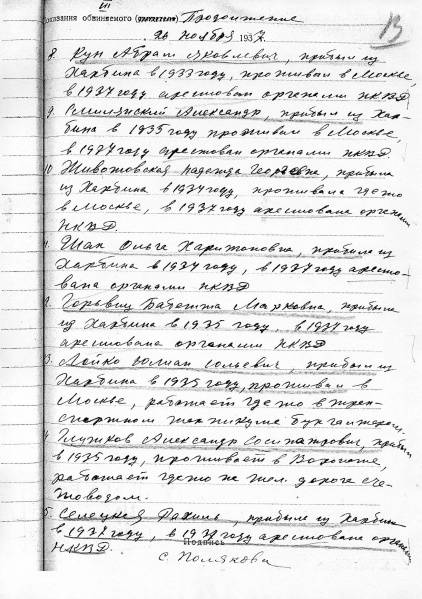 III
Показания обвиняемого (свидетеля) Продолжение
26 ноября 1937
13
8. Кун Абрам Яковлевич, прибыл из
Харбина в 1933 году, проживал в Москве,
в 1937 году арестован органами НКВД.
9. Смилянский Александр, прибыл из Хар-
бина в 1935 году проживал в Москве,
в 1937 году арестован органами НКВД.
10 Животовская Надежда Георгевна, прибыла
из Харбина в 1934 году, проживала где то
в Москве, в 1937 году арестована органами
НКВД.
1. Шак Ольга Харитоновна, прибыла из
Харбина в 1934 году, в 1937 году аресто-
вана органами НКВД
2. Горьвиц Марковна, прибыла
из Харбина в 1935 году, в 1937 году
арестована органами НКВД
3. Лойко Юлиан прибыл из
Харбина в 1935 году, проживал в
Москве, работает где то в тран-
спортном техникуме бухгалтером.
4 Глушков Александр прибыл
в 1935 году, проживает в Воронеже,
работает где то на жел. дороге сче-
товодом.
5. Селецкая Рахиль, прибыла из Харбина
в 1937 году, в 1937 году арестована органами
НКВД.
Подпись
С. Полякова